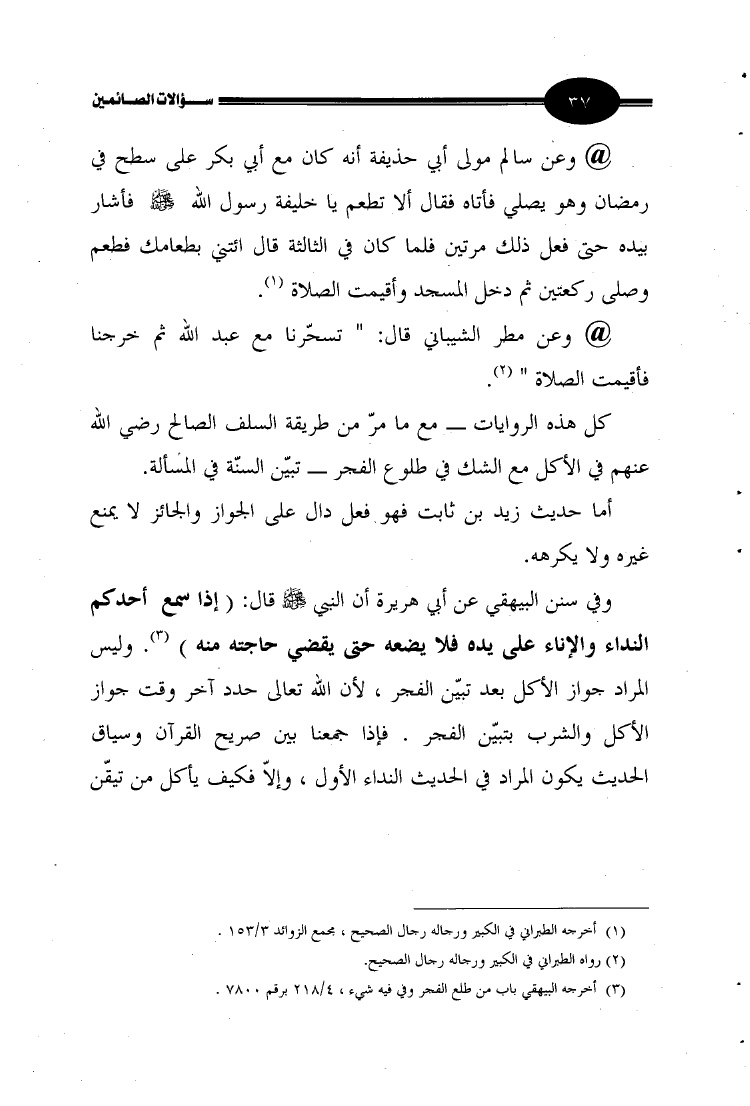 سـؤالات الصـائمين ٣٧
@ وعن سالم مولى أبي حذيفة أنه كان مع أبي بكر على سطح في
رمضان وهو يصلي فأتاه فقال ألا تطعم يا خليفة رسول الله ﷺ فأشار
بيده حتى فعل ذلك مرتين فلما كان في الثالثة قال ائتني بطعامك فطعم
وصلى ركعتين ثم دخل المسجد وأقيمت الصلاة (١).
@ وعن مطر الشيباني قال: " تسحّرنا مع عبد الله ثم خرجنا
فأقيمت الصلاة " (٢).
كل هذه الروايات ــ مع ما مرّ من طريقة السلف الصالح رضي الله
عنهم في الأكل مع الشك في طلوع الفجر ــ تبيّن السنّة في المسألة.
أما حديث زيد بن ثابت فهو فعل دال على الجواز والجائز لا يمنع
غيره ولا يكرهه.
وفي سنن البيهقي عن أبي هريرة أن النبي ﷺ قال: ( إذا سمع أحدكم
النداء والإناء على يده فلا يضعه حتى يقضي حاجته منه ) (٣). وليس
المراد جواز الأكل بعد تبيّن الفجر ، لأن الله تعالى حدد آخر وقت جواز
الأكل والشرب بتبيّن الفجر . فإذا جمعنا بين صريح القرآن وسياق
الحديث يكون المراد في الحديث النداء الأول ، وإلاّ فكيف يأكل من تيقّن
(١) أخرجه الطبراني في الكبير ورجاله رجال الصحيح ، مجمع الزوائد ١٥٣/٣ .
(٢) رواه الطبراني في الكبير ورجاله رجال الصحيح.
(٣) أخرجه البيهقي باب من طلع الفجر وفي فيه شيء ، ٢١٨/٤ برقم ٧٨٠٠ .